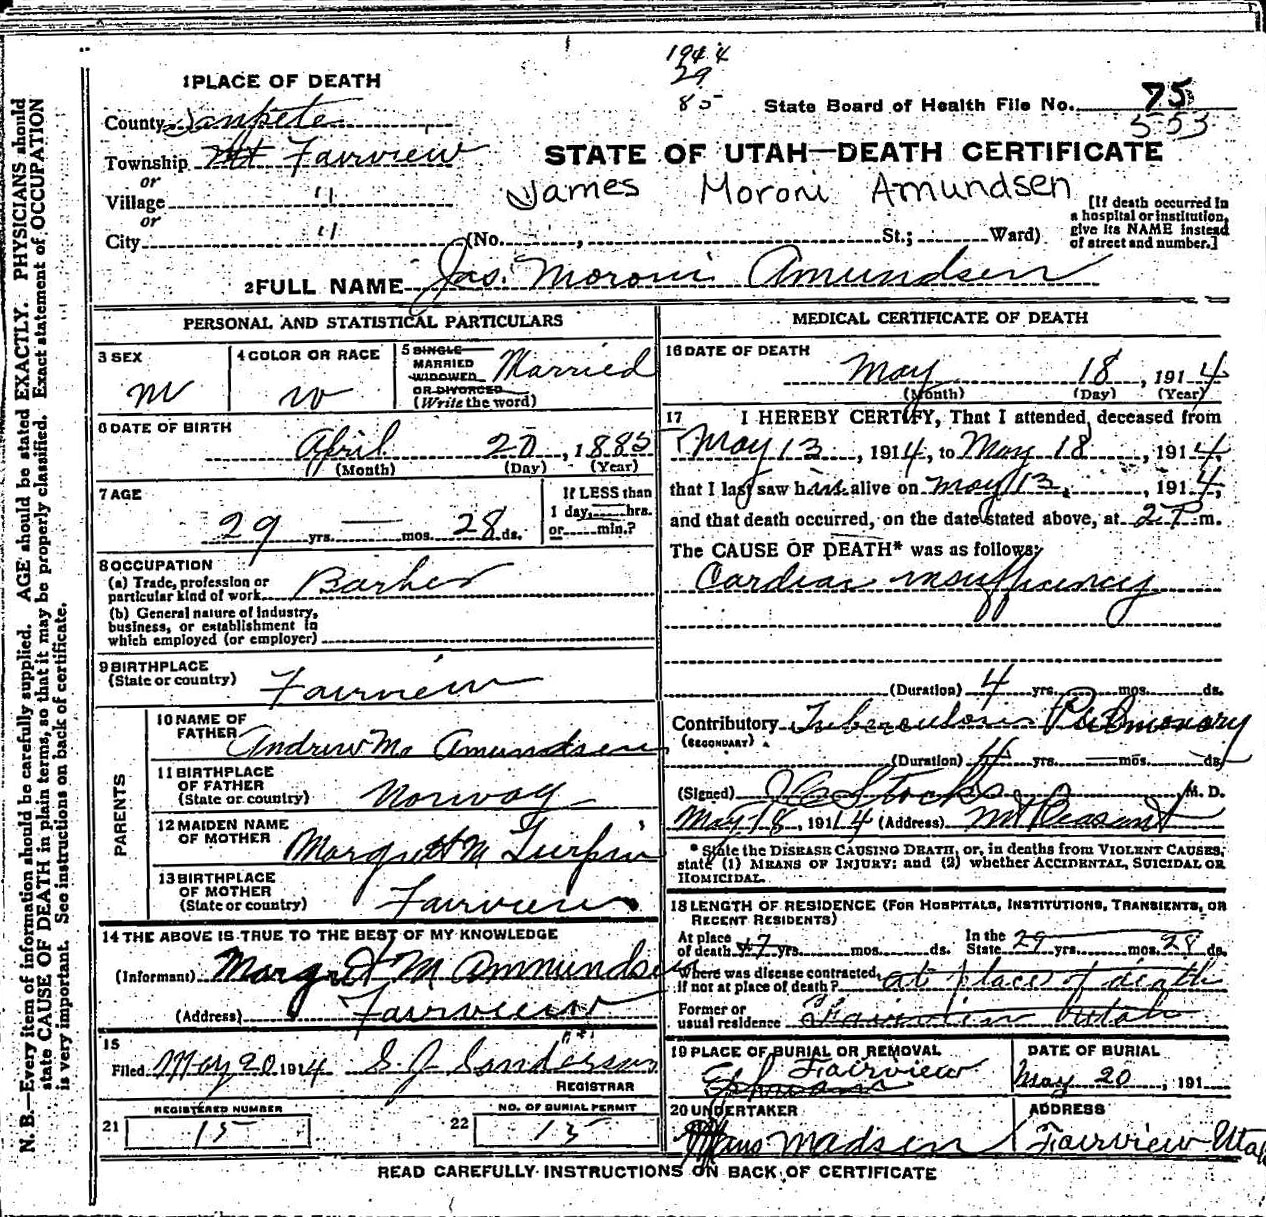 1944
29
85
1 PLACE OF DEATH
State Board of Health File No. 75
553
County Sanpete
Township Mt Fairview
or
Village "
or
City "
STATE OF UTAH—DEATH CERTIFICATE
James Moroni Amundsen
[If death occurred in a hospital or institution, give its NAME instead of street and number.]
(No. , St.; Ward)
2 FULL NAME Jas. Moroni Amundsen
PERSONAL AND STATISTICAL PARTICULARS
3 SEX
M
4 COLOR OR RACE
W
5 SINGLE
MARRIED
WIDOWED
OR DIVORCED
(Write the word)
Married
6 DATE OF BIRTH
April 20, 1885
(Month) (Day) (Year)
7 AGE
29 yrs. — mos. 28 ds.
If LESS than
1 day, hrs.
or min.?
8 OCCUPATION
(a) Trade, profession or
particular kind of work Barber
(b) General nature of industry,
business, or establishment in
which employed (or employer)
9 BIRTHPLACE
(State or country) Fairview
PARENTS
10 NAME OF
FATHER Andrew M. Amundsen
11 BIRTHPLACE
OF FATHER
(State or country) Norway
12 MAIDEN NAME
OF MOTHER Margrett M Turpin
13 BIRTHPLACE
OF MOTHER
(State or country) Fairview
14 THE ABOVE IS TRUE TO THE BEST OF MY KNOWLEDGE
(Informant) Margret M Ammundsen
(Address) Fairview
15
Filed May 20 1914 S. J. Sanderson
REGISTRAR
REGISTERED NUMBER
21 15
NO. OF BURIAL PERMIT
22 15
MEDICAL CERTIFICATE OF DEATH
16 DATE OF DEATH
May 18, 1914
(Month) (Day) (Year)
17 I HEREBY CERTIFY, That I attended deceased from
May 13, 1914, to May 18, 1914
that I last saw him alive on May 13, 1914,
and that death occurred, on the date stated above, at 2 P. m.
The CAUSE OF DEATH* was as follows:
Cardiac insufficiency
(Duration) 4 yrs. mos. ds.
Contributory Tuberculosis Pulmonary
(SECONDARY)
(Duration) 4 yrs. — mos. ds.
(Signed) Stocks M. D.
May 18, 1914 (Address) Mt Pleasant
* State the DISEASE CAUSING DEATH, or, in deaths from VIOLENT CAUSES,
state (1) MEANS OF INJURY; and (2) whether ACCIDENTAL, SUICIDAL OR
HOMICIDAL.
18 LENGTH OF RESIDENCE (FOR HOSPITALS, INSTITUTIONS, TRANSIENTS, OR
RECENT RESIDENTS)
At place
of death yrs. mos. ds. In the State 29 yrs. mos. 28 ds.
Where was disease contracted,
if not at place of death? at place of death
Former or
usual residence Fairview Utah
19 PLACE OF BURIAL OR REMOVAL
Fairview
Ephraim
DATE OF BURIAL
May 20, 191
20 UNDERTAKER
Hans Madsen
ADDRESS
Fairview Utah
READ CAREFULLY INSTRUCTIONS ON BACK OF CERTIFICATE
N. B.—Every item of information should be carefully supplied. AGE should be stated EXACTLY. PHYSICIANS should
state CAUSE OF DEATH in plain terms, so that it may be properly classified. Exact statement of OCCUPATION
is very important. See instructions on back of certificate.